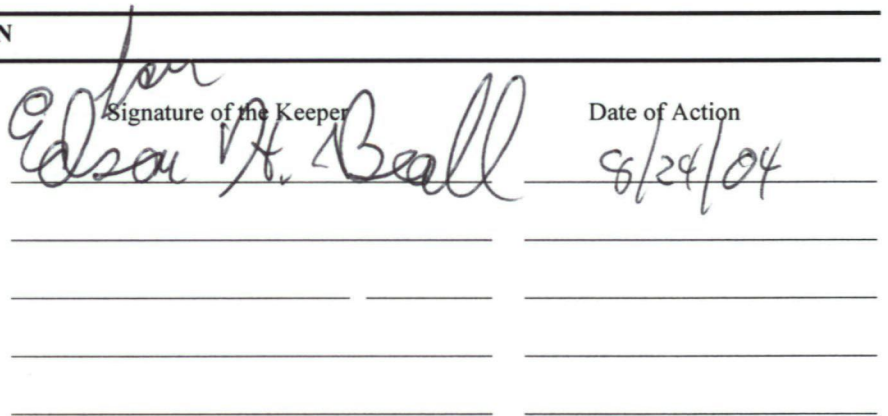 N
for
Signature of the Keeper Date of Action
Edson H. Beall 8/24/04